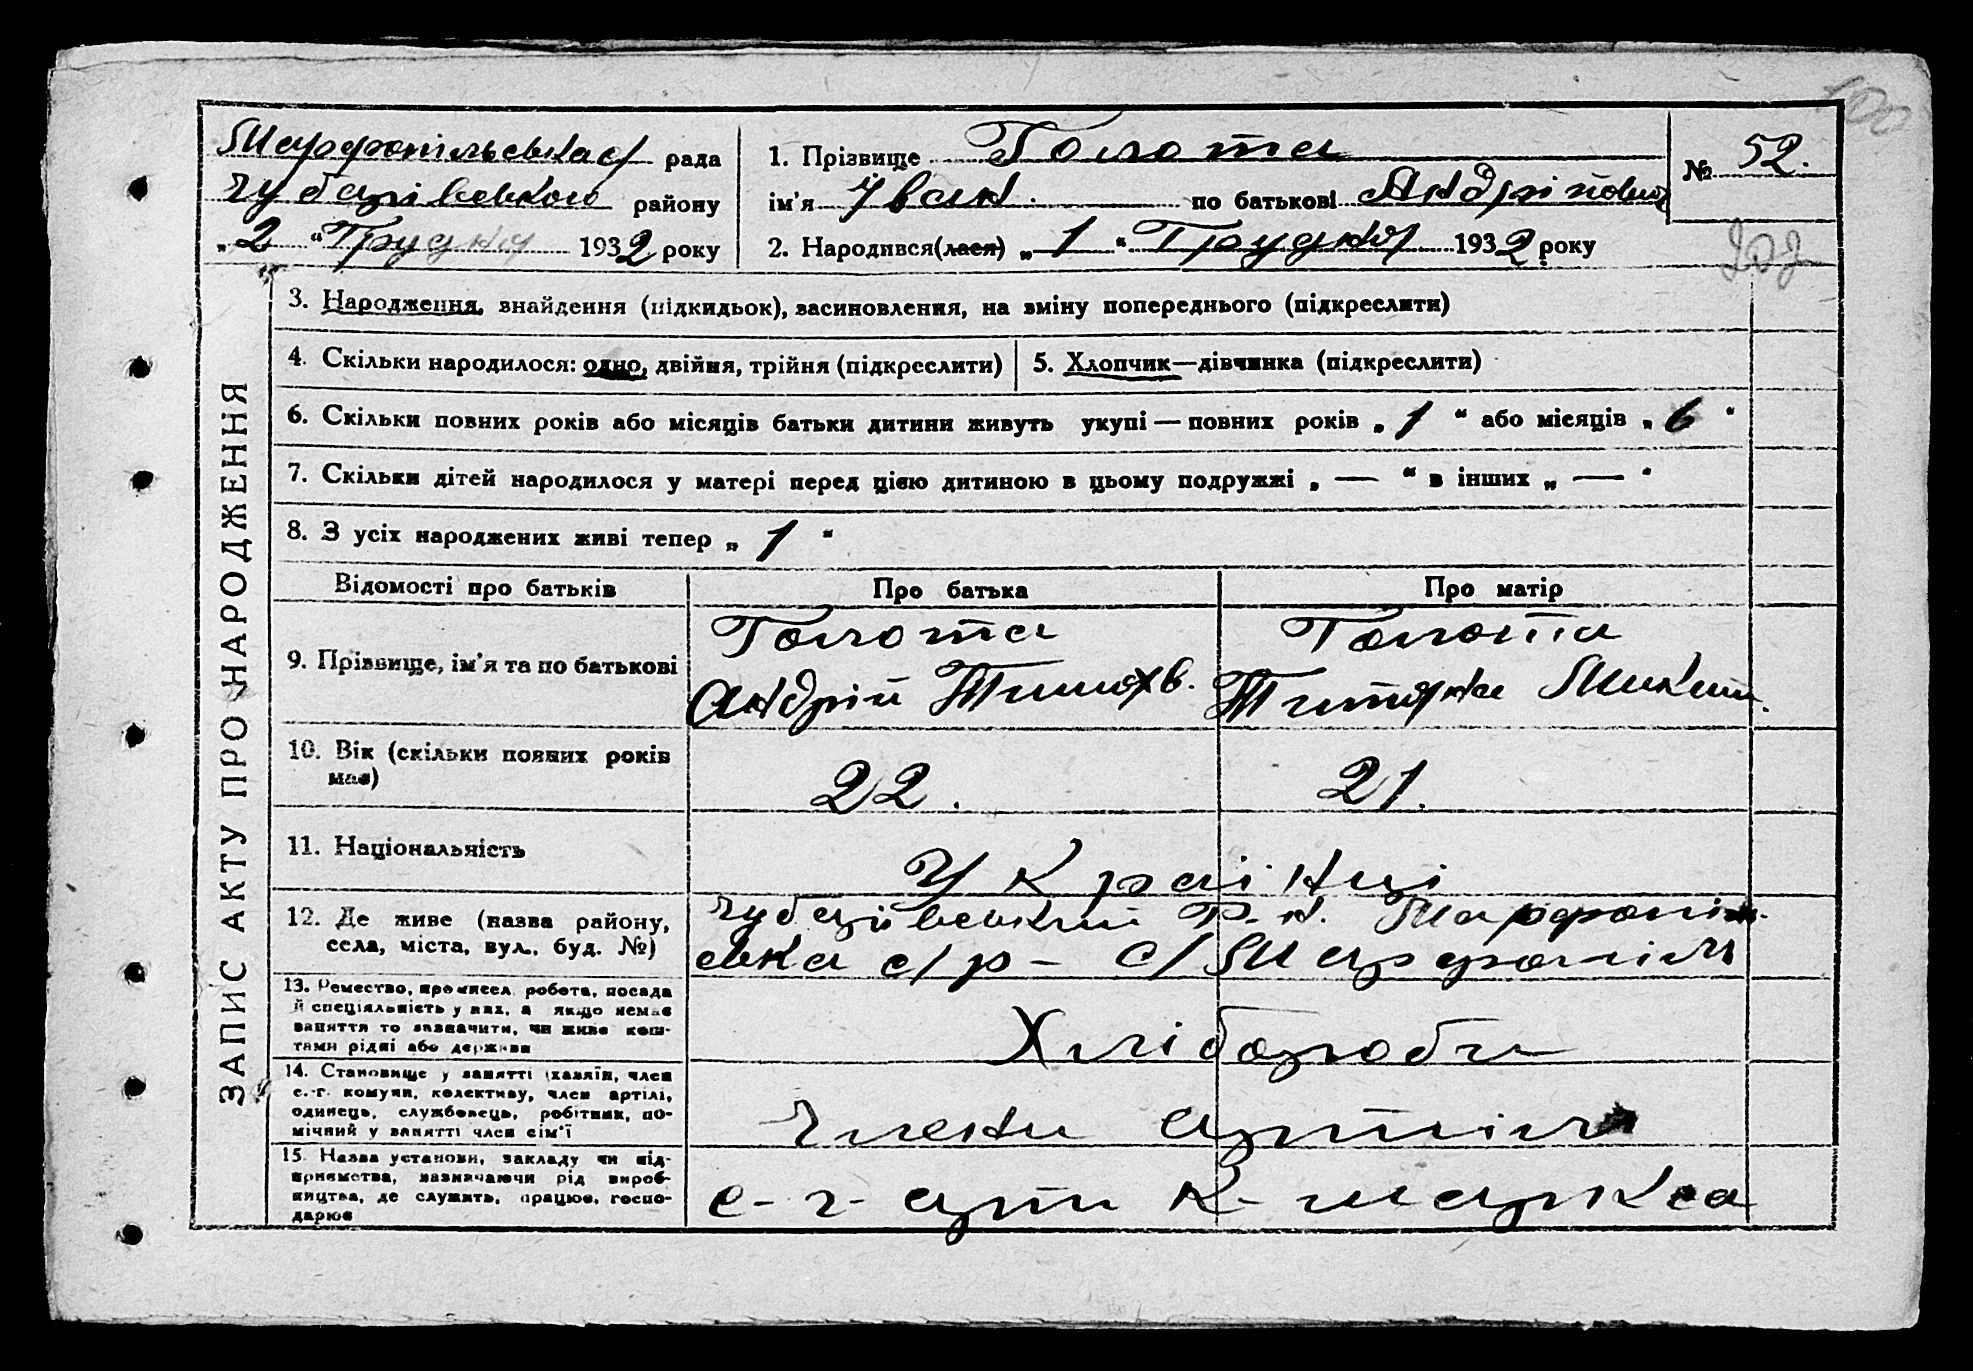 Марфопільська с/ рада
Чубарівського району
„2 “ Грудня 1932 року
1. Прізвище Голота
ім'я Іван по батькові Андрійович
2. Народився(лася) „ 1 “ Грудня 1932 року
№ 52.
ЗАПИС АКТУ ПРО НАРОДЖЕННЯ
3. Народження, знайдення (підкидьок), засиновлення, на зміну попереднього (підкреслити)
4. Скільки народилося: одно, двійня, трійня (підкреслити)
5. Хлопчик—дівчинка (підкреслити)
6. Скільки повних років або місяців батьки дитини живуть укупі — повних років „ 1 “ або місяців „ 6 “
7. Скільки дітей народилося у матері перед цією дитиною в цьому подружжі „ — “ в інших „ — “
8. З усіх народжених живі тепер „ 1 “
Відомості про батьків
Про батька
Про матір
9. Прізвище, ім'я та по батькові
Голота
Андрій Тимохв.
Голота
Титяна Микит.
10. Вік (скільки повних років
має)
22.
21.
11. Національність
Українці
12. Де живе (назва району,
села, міста, вул., буд. №)
Чубарівський Р-н. Марфопіль-
ська с/р - с/Марфопіль
13. Ремество, промисел, робота, посада
й спеціяльність у них, а якщо немає
заняття то зазначити, чи живе кош-
тами рідні або держави
Хлібороби
14. Становище у занятті (хазяїн, член
с.-г. комуни, колективу, член артілі,
одинець, службовець, робітник, по-
мічний у занятті член сім'ї
Члени артіли
15. Назва установи, закладу чи під-
приємства, зазначаючи рід вироб-
ництва, де служить, працює, госпо-
дарює
с-г- арт К- маркса